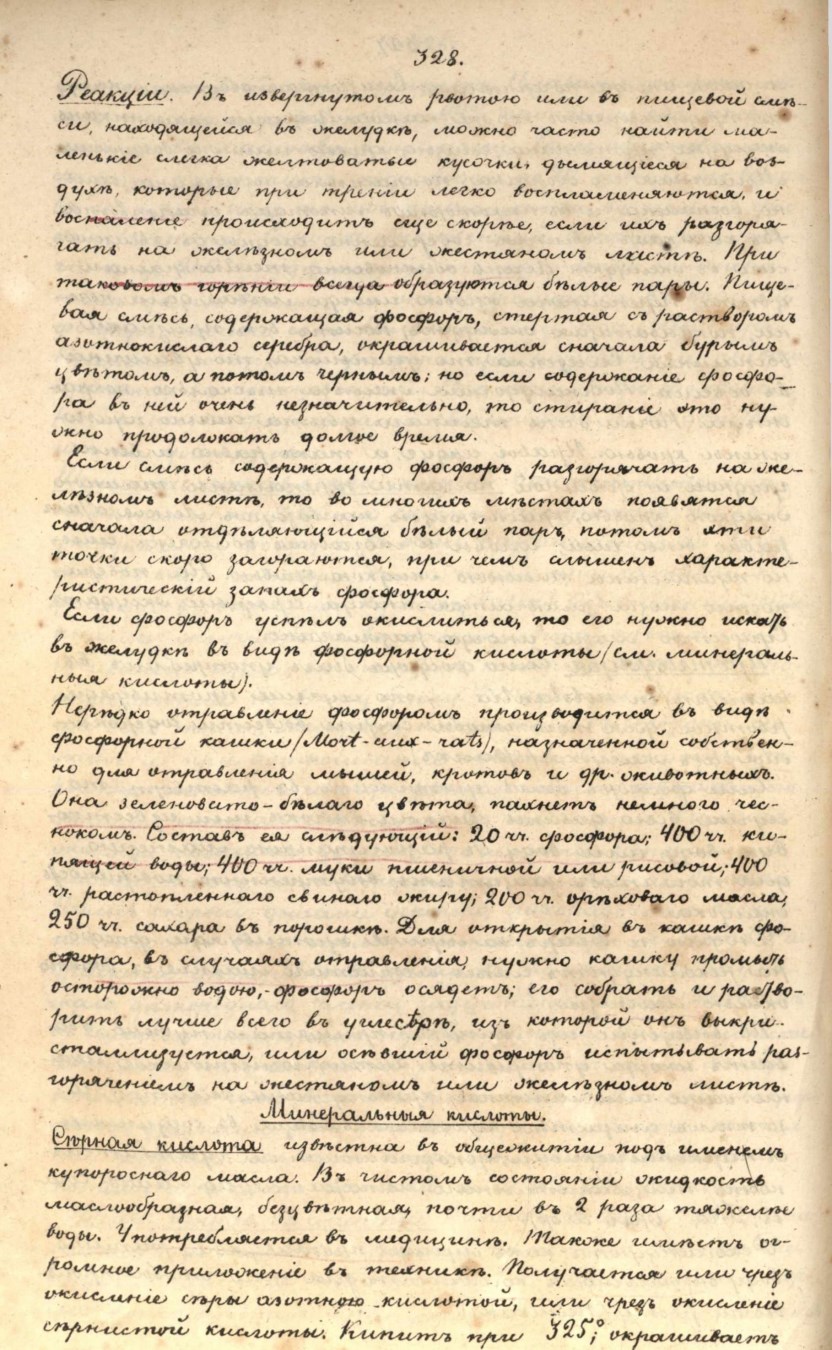 328.
Реакціи. Въ извергнутомъ рвотою или въ пищевой смѣ-
си, находящейся въ желудкѣ, можно часто найти ма-
ленькіе слегка желтоватые кусочки, дымящіеся на воз-
духѣ, которые при треніи легко воспламеняются, и
воспаленіе происходитъ еще скорѣе, если ихъ разгоря-
чать на желѣзномъ или жестяномъ листѣ. При
таковомъ горѣніи всегда образуются бѣлые пары. Пище-
вая смѣсь, содержащая фосфоръ, стертая съ растворомъ
азотнокислаго серебра, окрашивается сначала бурымъ
цвѣтомъ, а потомъ чернымъ; но если содержаніе фосфо-
ра въ ней очень незначительно, то стираніе это ну-
жно продолжать долгое время.
Если смѣсь содержащую фосфоръ разгорячать на же-
лѣзномъ листѣ, то во многихъ мѣстахъ появятся
сначала отдѣляющійся бѣлый паръ, потомъ эти
точки скоро загораются, при чемъ слышенъ характе-
ристическій запахъ фосфора.
Если фосфоръ успѣлъ окислиться, то его нужно искать
въ желудкѣ въ видѣ фосфорной кислоты (см. минераль-
ныя кислоты).
Нерѣдко отравленіе фосфоромъ производится въ видѣ
фосфорной кашки (Mort-aux-rats), назначенной собствен-
но для отравленія мышей, кротовъ и др. животныхъ.
Она зеленовато-бѣлаго цвѣта, пахнетъ немного чес-
нокомъ. Составъ ея слѣдующій: 20 чч. фосфора; 400 чч. ки-
пящей воды; 400 чч. муки пшеничной или рисовой; 400
чч. растопленнаго свинаго жиру; 200 чч. орѣховаго масла;
250 чч. сахара въ порошкѣ. Для открытія въ кашкѣ фо-
сфора, въ случаяхъ отравленія, нужно кашку промыть
осторожно водою, - фосфоръ осядетъ; его собрать и раство-
рить лучше всего въ углесѣрѣ, изъ которой онъ выкри-
сталлизуется, или осѣвшій фосфоръ испытывать раз-
горяченіемъ на жестяномъ или желѣзномъ листѣ.
Минеральныя кислоты.
Сѣрная кислота извѣстна въ общежитіи подъ именемъ
купороснаго масла. Въ чистомъ состояніи жидкость
маслообразная, безцвѣтная, почти въ 2 раза тяжелѣе
воды. Употребляется въ медицинѣ. Также имѣетъ ог-
ромное приложеніе въ техникѣ. Получается или чрезъ
окисленіе сѣры азотною кислотой, или чрезъ окисленіе
сѣрнистой кислоты. Кипитъ при 325°; окрашиваетъ